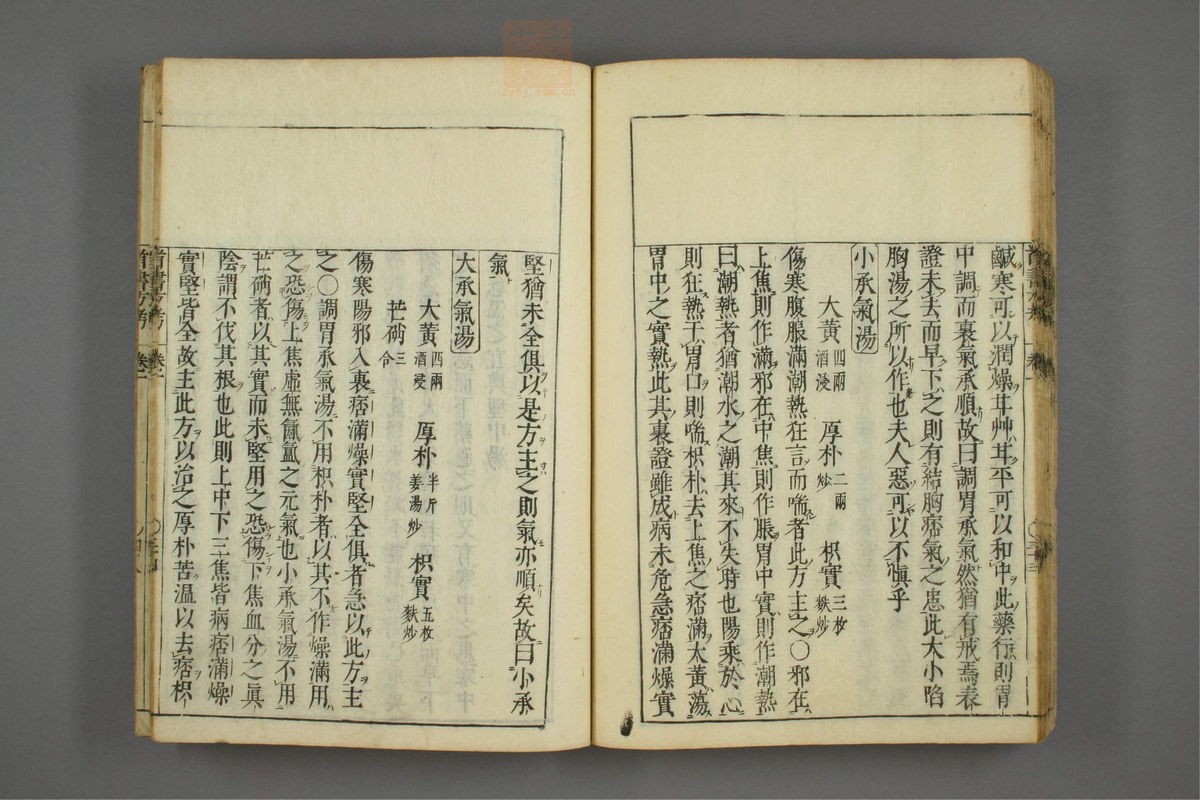 鹹寒可以潤燥甘艸甘平可以和中此藥行則胃
中調而裏氣承順故曰調胃承氣然猶有戒焉表
證未去而早下之則有結胸痞氣之患此大小陷
胸湯之所以作也夫人惡可以不慎乎
小承氣湯
大黃四兩酒浸 厚朴二兩炒 枳實三枚麩炒
傷寒腹脹滿潮熱狂言而喘者此方主之〇邪在
上焦則作滿邪在中焦則作脹胃中實則作潮熱
曰潮熱者猶潮水之潮其來不失時也陽乘於心
則狂熱干胃口則喘枳朴去上焦之痞滿大黃蕩
胃中之實熱此其裏證雖成病未危急痞滿燥實
堅猶未全俱以是方主之則氣亦順矣故曰小承
氣
大承氣湯
大黃四兩酒浸 厚朴半斤姜湯炒 枳實五枚麩炒
芒硝三合
傷寒陽邪入裏痞滿燥實堅全俱者急以此方主
之〇調胃承氣湯不用枳朴者以其不作燥滿用
之恐傷上焦虛無氤氳之元氣也小承氣湯不用
芒硝者以其實而未堅用之恐傷下焦血分之真
陰謂不伐其根也此則上中下三焦皆病痞滿燥
實堅皆全故主此方以治之厚朴苦溫以去痞枳
卷一
zysj.com.cn